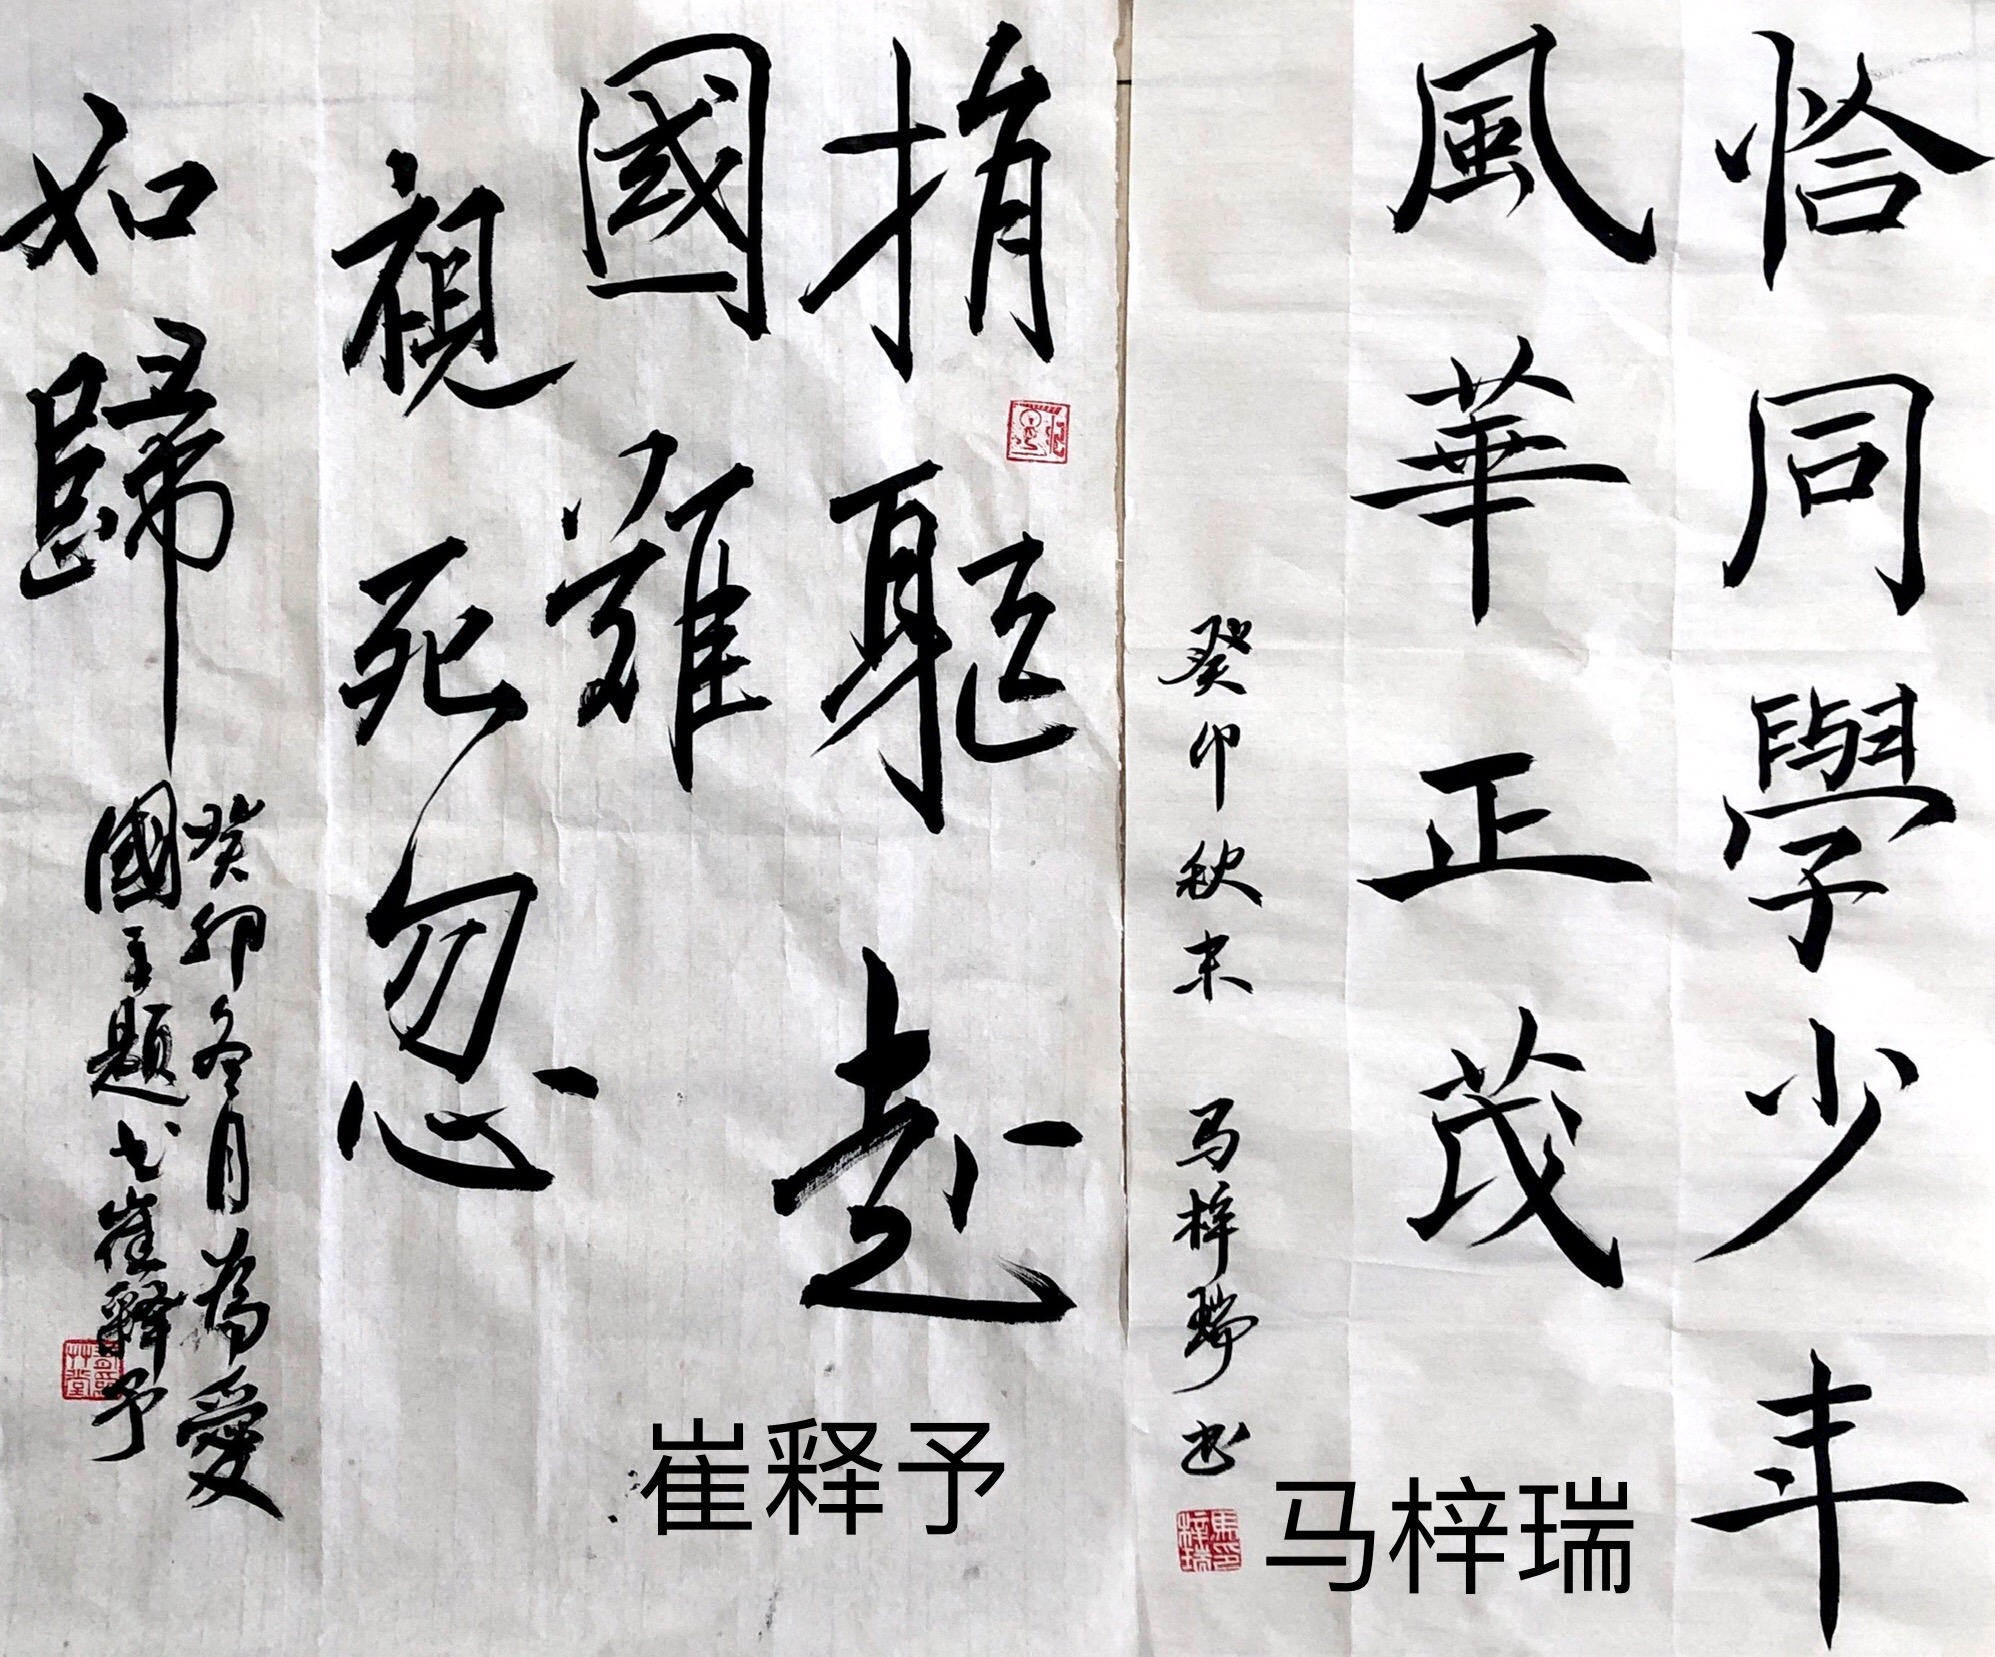 恰同學少年
風華正茂
癸卯秋末 马梓瑞书
馬印
梓瑞
马梓瑞
捐軀赴
國難
視死忽
如歸
癸卯冬月為愛
國主题书崔釋予
崔释予